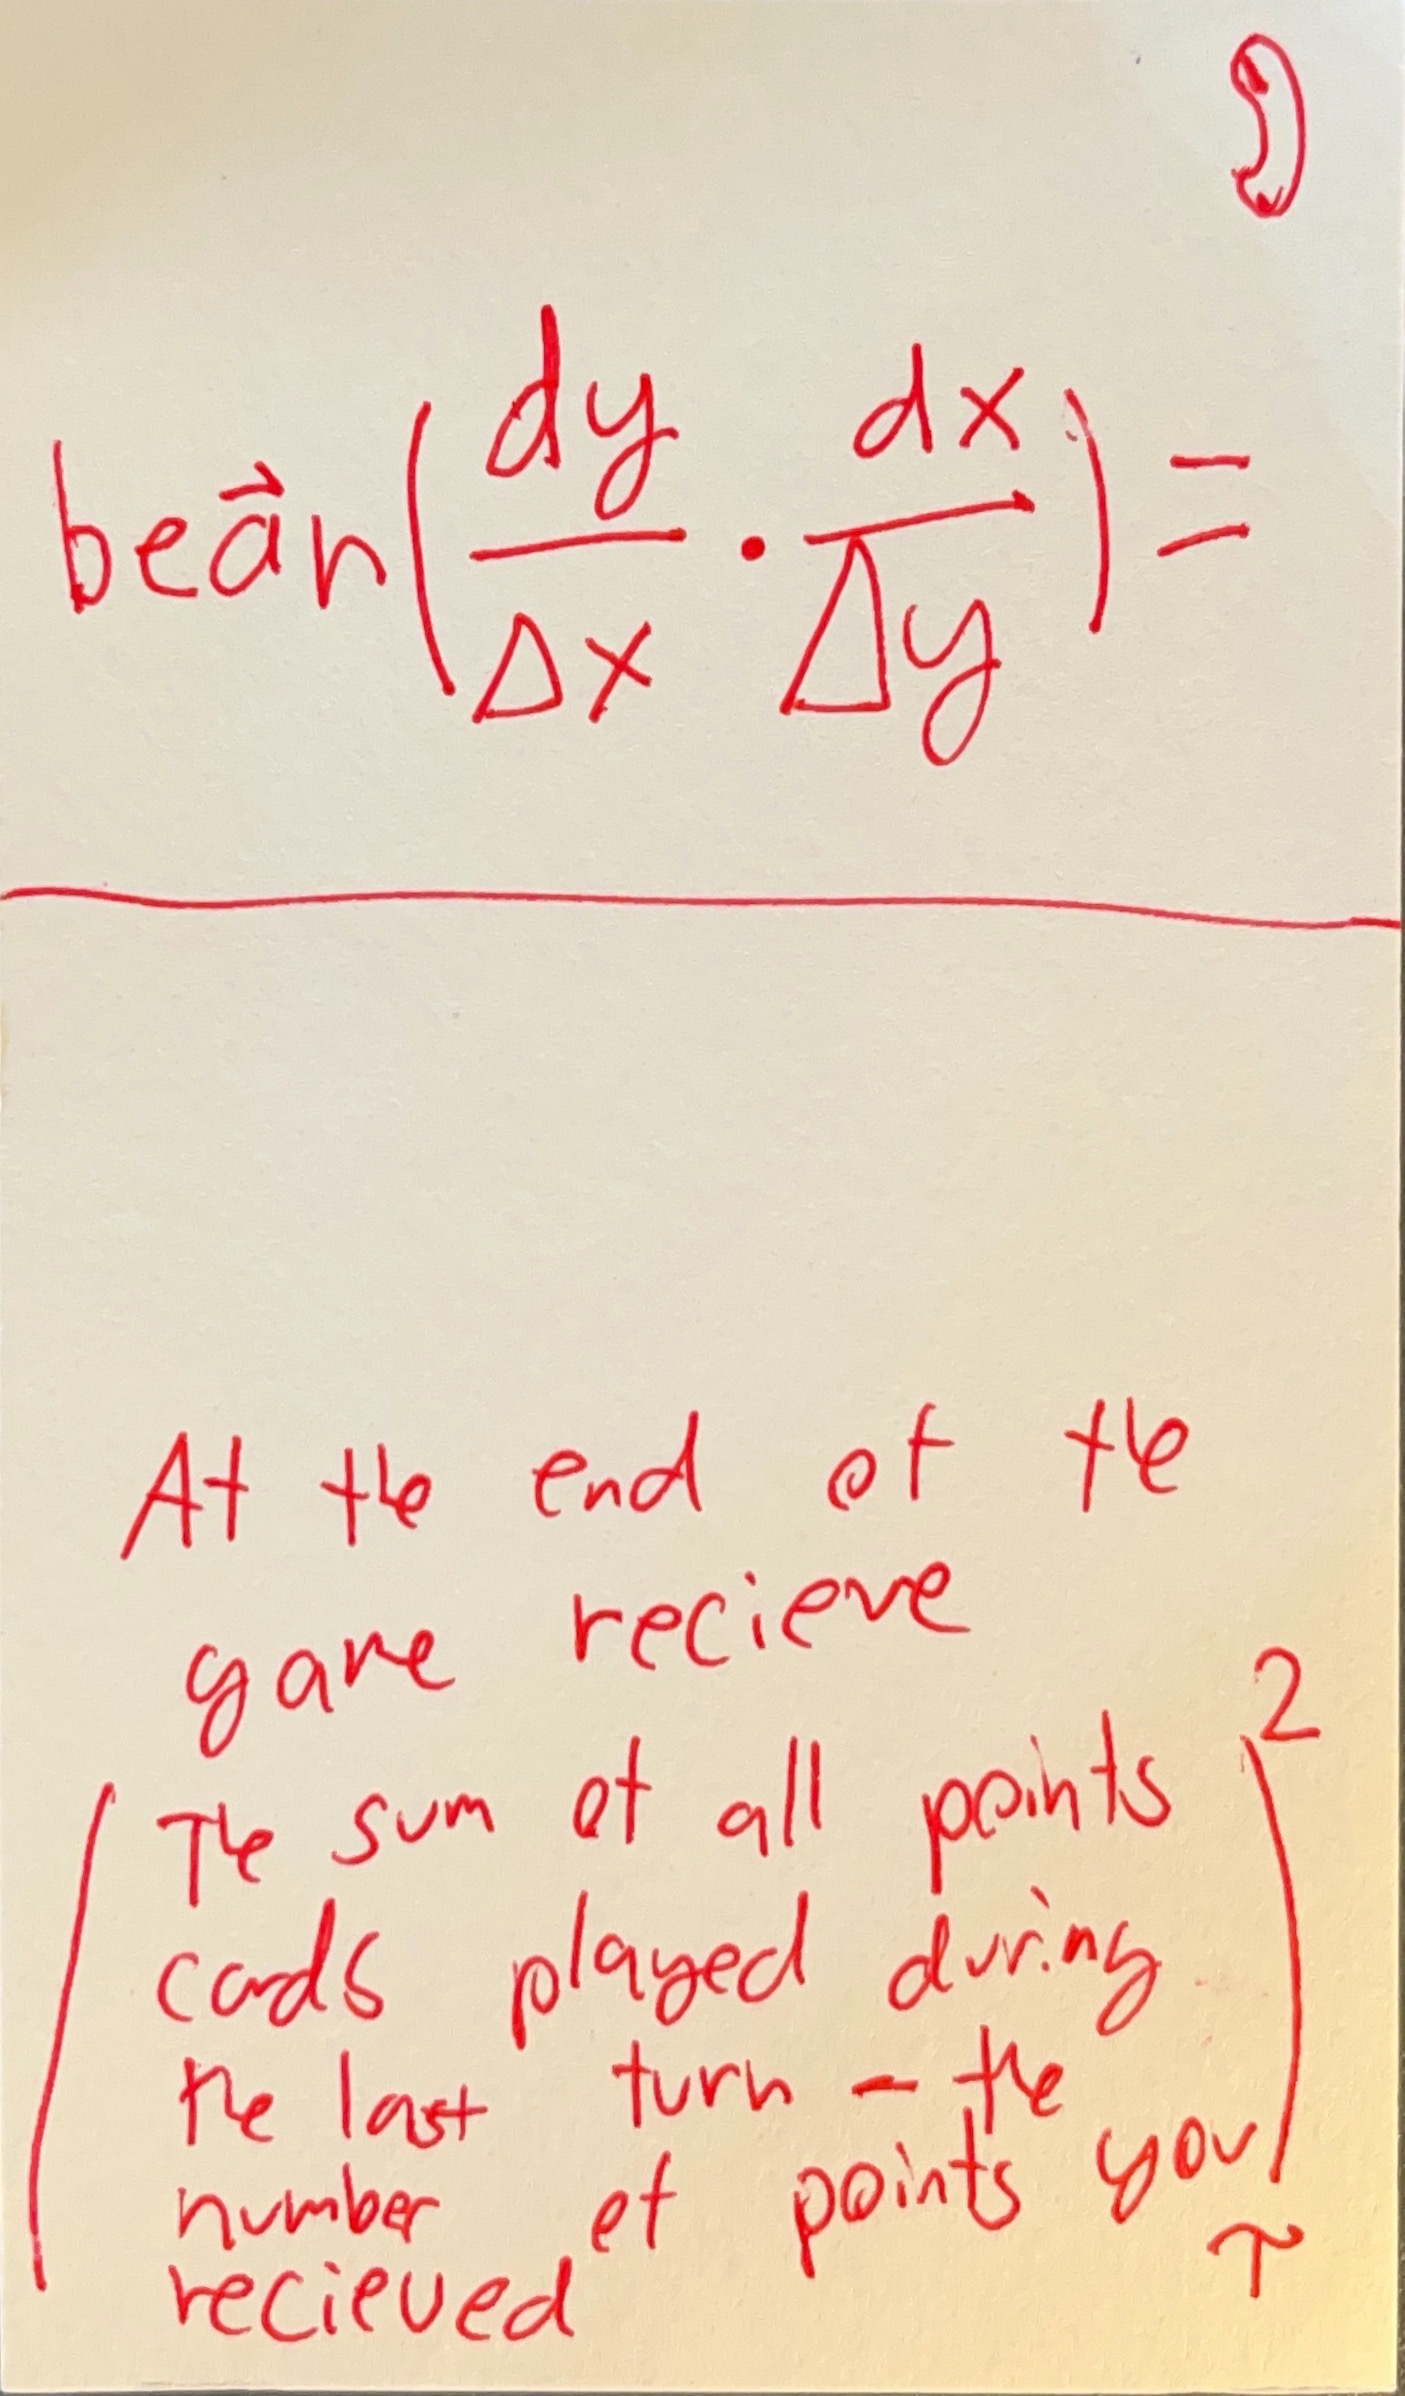 bea⃗n(dy/Δx · dx/Δy) =
At the end of the
game recieve
(The sum of all points
cards played during
the last turn - the
number of points you
recieved)²
T